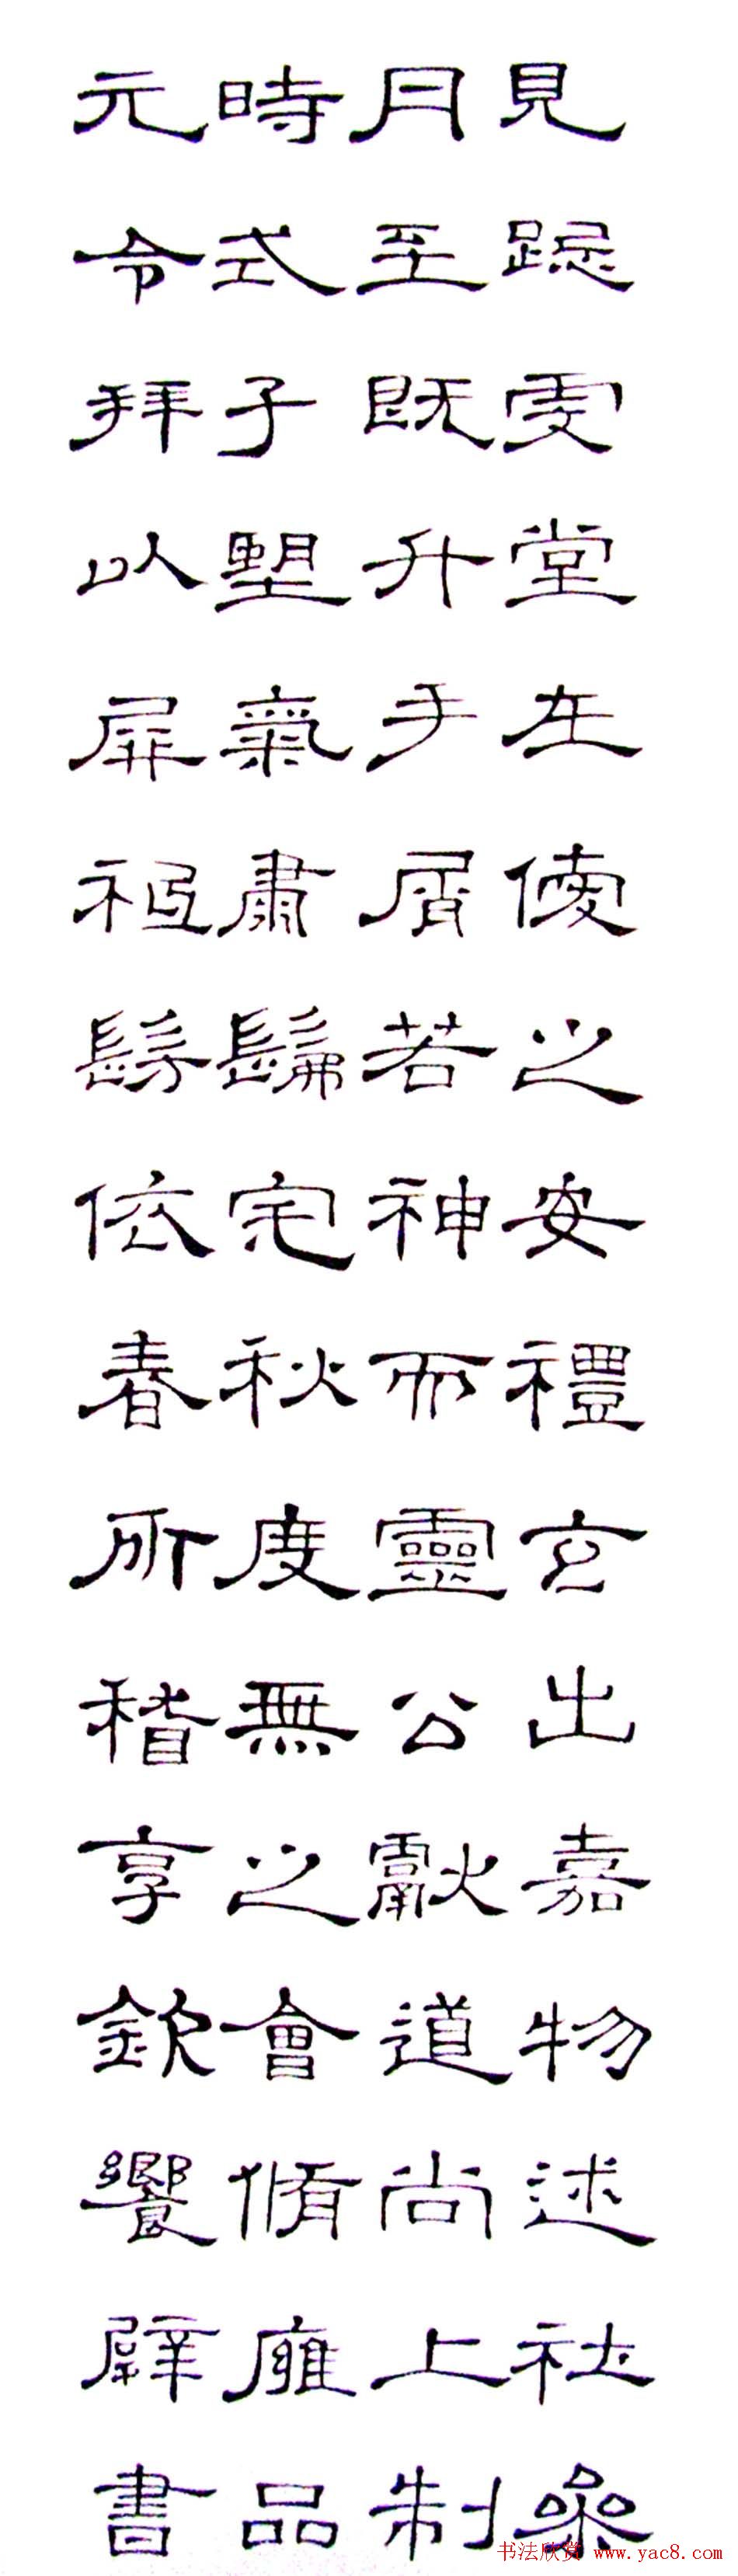 元時月見
令式至跽
拜子既虔
以望升堂
屏氣手在
祗肅屑僾
髣髴若之
依宅神安
春秋而禮
所度靈玄
稽無公出
享之獻嘉
欽會道物
饗脩尚述
辟廱上社
書品制參
书法欣赏 www.yac8.com